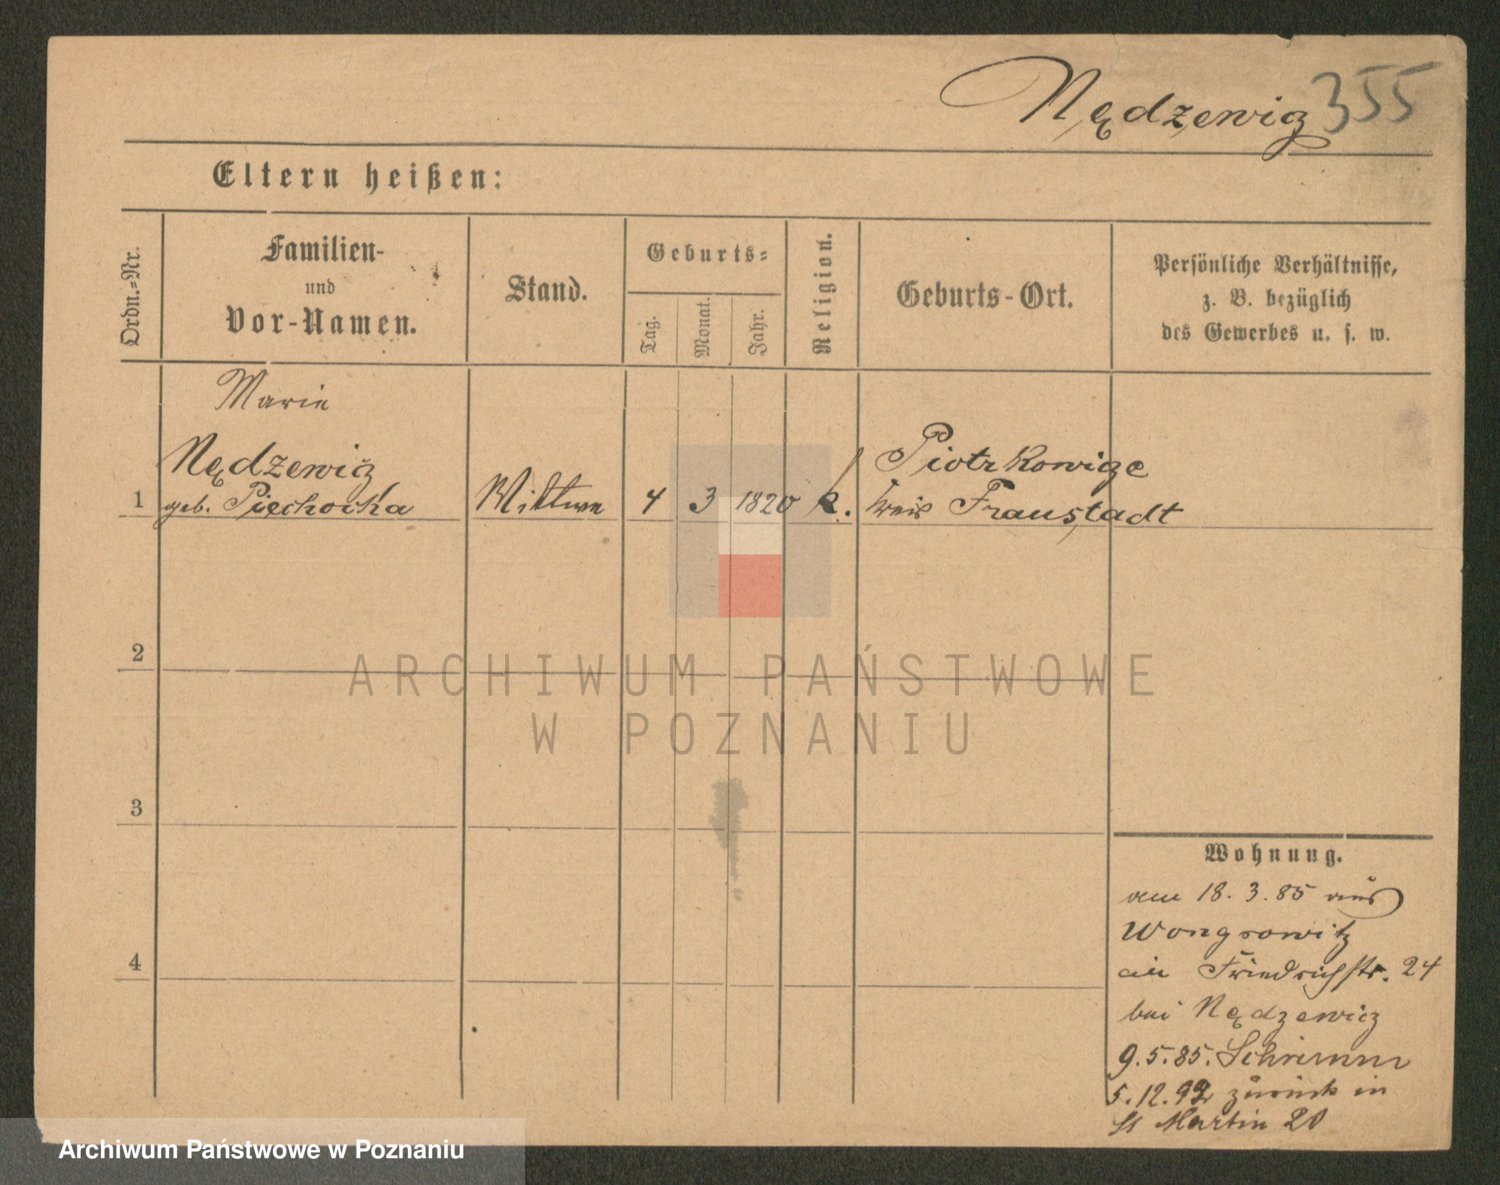 Nędzewicz 355
Eltern heißen:
Ordn.-Nr.
Familien-
und
Vor-Namen.
Stand.
Geburts-
Tag.
Monat.
Jahr.
Religion.
Geburts-Ort.
Persönliche Verhältnisse,
z. B. bezüglich
des Gewerbes u. s. w.
Marie
Nędzewicz
1 geb. Piechocka Wittwe 4 3 1820 k.
Piotrkowice
Kreis Fraustadt
2
3
4
Wohnung.
am 18. 3. 85 aus
Wongrowitz
in Friedrichstr. 24
bei Nędzewicz
9. 5. 85. Schrimm
5. 12. 92 zurück in
St Martin 20
ARCHIWUM PAŃSTWOWE
W POZNANIU
Archiwum Państwowe w Poznaniu